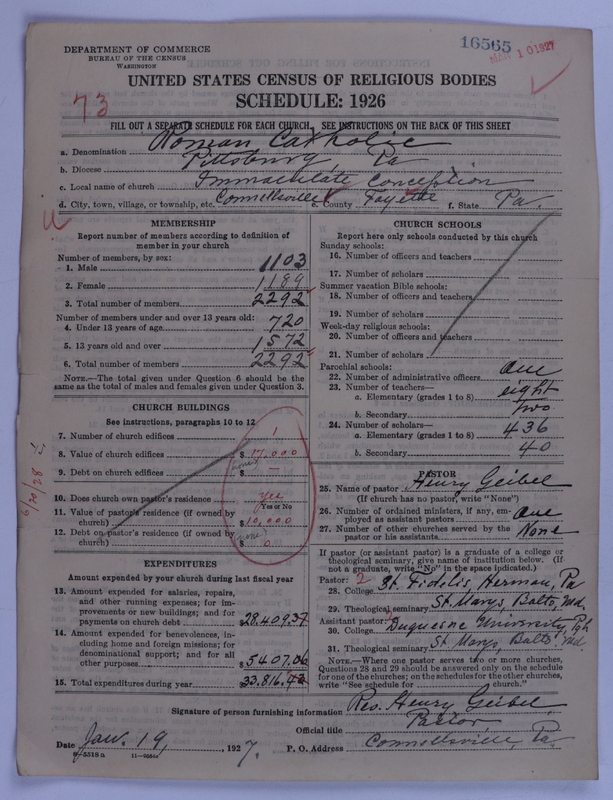 DEPARTMENT OF COMMERCE
BUREAU OF THE CENSUS
WASHINGTON
16565
MAR 10 1927
UNITED STATES CENSUS OF RELIGIOUS BODIES
73
SCHEDULE: 1926
FILL OUT A SEPARATE SCHEDULE FOR EACH CHURCH. SEE INSTRUCTIONS ON THE BACK OF THIS SHEET
a. Denomination Roman Catholic
b. Diocese Pittsburg Pa
c. Local name of church Immaculate Conception
d. City, town, village, or township, etc. Connellsville e. County Fayette f. State Pa.
MEMBERSHIP
Report number of members according to definition of
member in your church
Number of members, by sex:
1. Male 1103
2. Female 1189
3. Total number of members 2292
Number of members under and over 13 years old:
4. Under 13 years of age 720
5. 13 years old and over 1572
6. Total number of members 2292
NOTE.—The total given under Question 6 should be the
same as the total of males and females given under Question 3.
CHURCH BUILDINGS
See instructions, paragraphs 10 to 12
7. Number of church edifices 1
8. Value of church edifices $ 17,000
9. Debt on church edifices $ none —
10. Does church own pastor's residence yes
Yes or No
11. Value of pastor's residence (if owned by
church) $ 10,000
12. Debt on pastor's residence (if owned by
church) $ none 0
6/20/28
EXPENDITURES
Amount expended by your church during last fiscal year
13. Amount expended for salaries, repairs,
and other running expenses; for im-
provements or new buildings; and for
payments on church debt 28,409.37
14. Amount expended for benevolences, in-
cluding home and foreign missions; for
denominational support; and for all
other purposes $ 5407.06
15. Total expenditures during year 33,816.43
CHURCH SCHOOLS
Report here only schools conducted by this church
Sunday schools:
16. Number of officers and teachers
17. Number of scholars
Summer vacation Bible schools:
18. Number of officers and teachers
19. Number of scholars
Week-day religious schools:
20. Number of officers and teachers
21. Number of scholars
Parochial schools:
22. Number of administrative officers one
23. Number of teachers—
a. Elementary (grades 1 to 8) eight
b. Secondary two
24. Number of scholars—
a. Elementary (grades 1 to 8) 436
b. Secondary 40
PASTOR
25. Name of pastor Henry Geibel
(If church has no pastor, write "None")
26. Number of ordained ministers, if any, em-
ployed as assistant pastors one
27. Number of other churches served by the
pastor or his assistants None
If pastor (or assistant pastor) is a graduate of a college or
theological seminary, give name of institution below. (If
not a graduate, write "No" in the space indicated.)
Pastor: 2
28. College St. Fidelis, Herman, Pa
29. Theological seminary St. Marys, Balto, Md.
Assistant pastor:
30. College Duquesne University, Pgh
31. Theological seminary St Marys, Balto, Md.
NOTE.—Where one pastor serves two or more churches,
Questions 28 and 29 should be answered only on the schedule
for one of the churches; on the schedules for the other churches,
write "See schedule for church."
Signature of person furnishing information Rev. Henry Geibel,
Official title Pastor
Date Jan. 19, 1927. P. O. Address Connellsville, Pa.